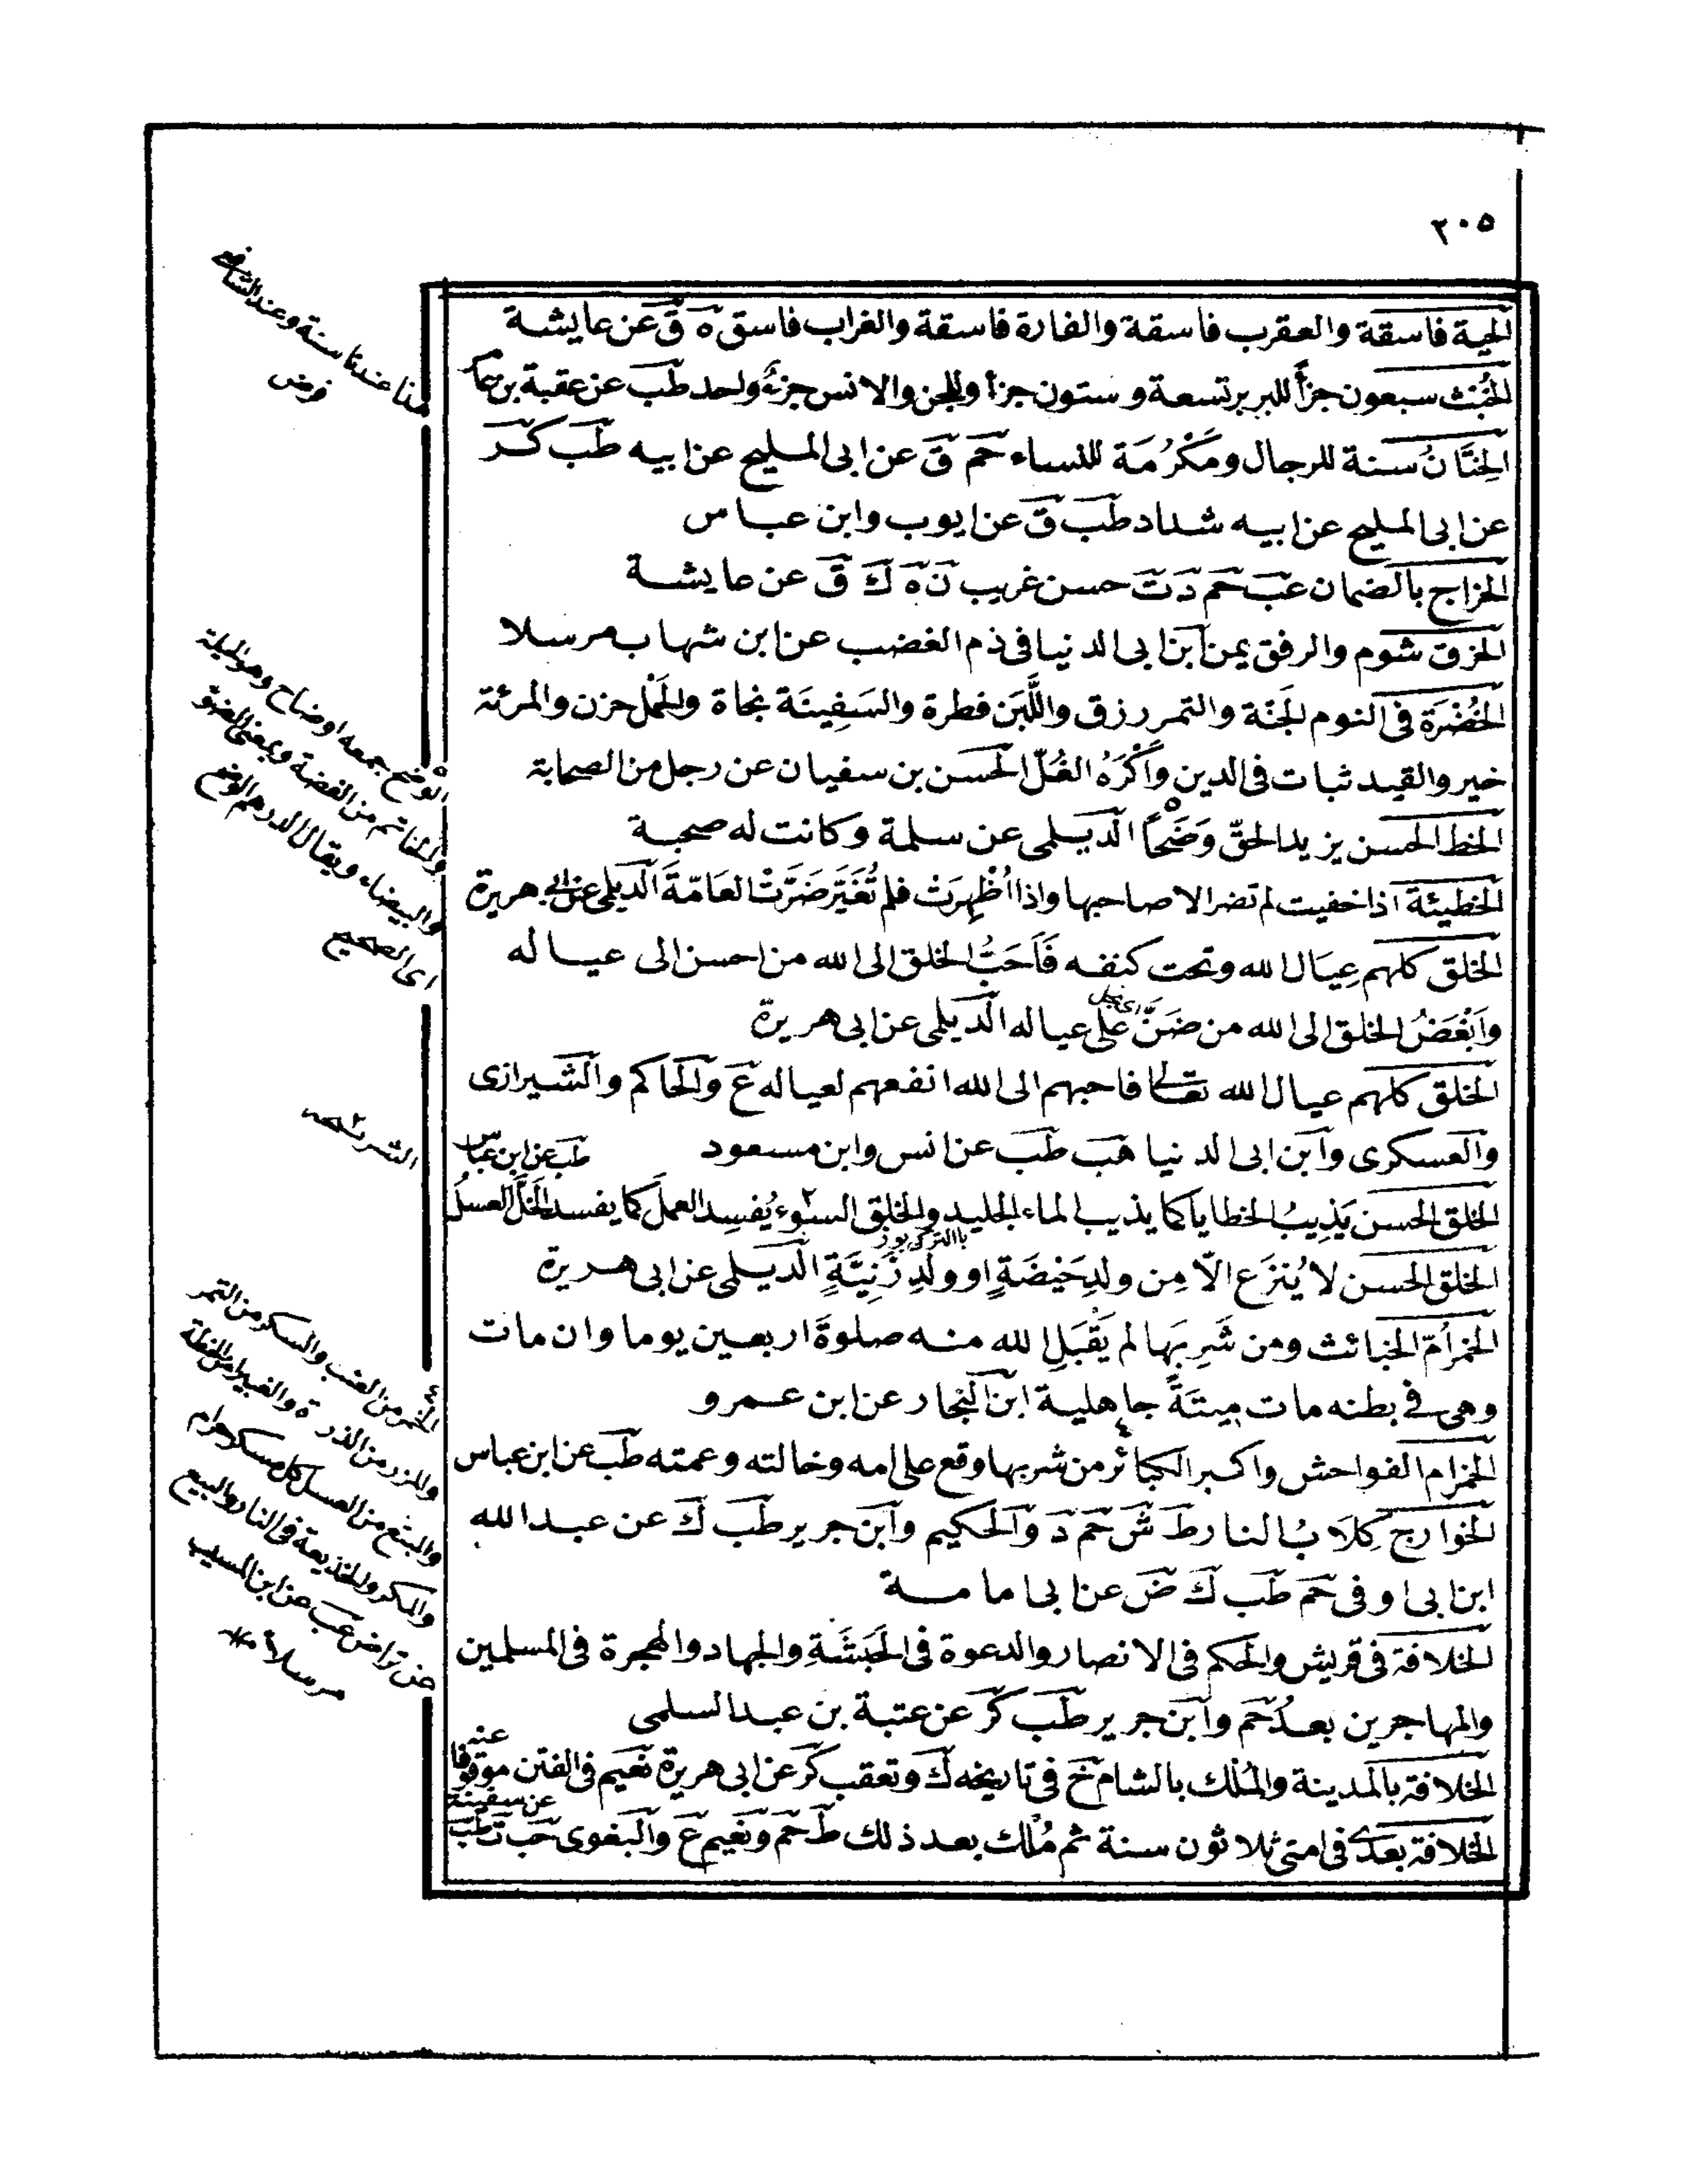 ٢٠٥
الحية فاسقة والعقرب فاسقة والفارة فاسقة والغراب فاسق ه ق عن عايشة
الخُبْث سبعون جزأً للبربر تسعة وستون جزأ وللجن والانس جزءٌ واحد طب عن عقبة بن
الخِتَانُ سنة للرجال ومَكْرُمَة للنساء حم ق عن ابى المليح عن ابيه طب كر
عن ابى المليح عن ابيه شداد طب ق عن ايوب وابن عباس
الخراج بالضمان عب حم د ت حسن غريب ن ه ك ق عن عايشة
الخرق شوم والرفق يمن ابن ابى الدنيا فى ذم الغضب عن ابن شهاب مرسلا
الخُضْرَة فى النوم الجَنَة والتمر رزق واللَّبَن فطرة والسَفِينَة نجاة والجَمَل حزن والمرئة
خير والقيد ثبات فى الدين وأَكْرَهُ الغُلّ الحسن بن سفيان عن رجل من الصحابة
الخط الحسن يزيد الحقّ وَضَحاً الديلمى عن سلمة وكانت له صحبة
الخطيئة اذا خفيت لم تضر الا صاحبها واذا اُظْهِرَتْ فلم تُغَيَّر ضَرَّتْ العَامّةَ الديلمى عن ابى هريرة
الخلق كلهم عِيَال الله وتحت كنفه فَاَحَبُّ الخلق الى الله من احسن الى عياله
وَاَبْغَضُ الخلق الى الله من ضَنَّ على عياله الديلمى عن ابى هريرة
اى بخل
الخلق كلهم عيال الله تعالى فاحبهم الى الله انفعهم لعياله ع والحاكم والشيرازى
والعسكرى وابن ابى الدنيا هب طب عن انس وابن مسعود طب عن ابن عباس
الخلق الحسن يَذِيبُ الخطايا كما يذيب الماء الجليد والخلق السوء يُفسِد العملَ كما يفسد الخَلُّ العسلَ
باالتركى بوز
الخلق الحسن لا يُنْزَع الّا مِن ولدِ حَيْضَةٍ او ولَدِ زَنِيَّةٍ الديلمى عن ابى هريرة
الخمر أُمّ الخبائث ومن شَرِبَها لم يَقْبَلِ الله منه صلوةَ اربعين يوما وان مات
وهى فى بطنه مات مِيتَةً جاهلية ابن النجار عن ابن عمرو
الخمر ام الفواحش واكبر الكبائر من شربها وقع على امه وخالته وعمته طب عن ابن عباس
الخوارج كِلَابُ النار ط ش حم د والحكيم وابن جرير طب ك عن عبد الله
ابن ابى اوفى حم طب ك ض عن ابى امامة
الخلافة فى قريش والحكم فى الانصار والدعوة فى الحَبَشَةِ والجهاد والهجرة فى المسلمين
والمهاجرين بعدُ حم وابن جرير طب كر عن عتبة بن عبد السلمى
الخلافة بالمدينة والمُلك بالشام خ فى تاريخه ك وتعقب كر عن ابى هريرة نعيم فى الفتن عنه موقوفا
الخلافة بعدى فى امتى ثلاثون سنة ثم مُلك بعد ذلك ط حم ونعيم ع والبغوى حب ت طب عن سفينة
هذا عندنا سنة وعند الشافعى
فرض
الوضح جمعه اوضاح وهو الحيلة
والخاتم من الفضة وبمعنى الضوء
والبيضاء ويقال الدرهم الوضح
اى الصحيح
الخمر من العنب والسكر من التمر
والمزر من الذرة والغبيرا من الحنطة
والبتع من العسل كل مسكر حرام
والمكر والخديعة فى النار والبيع
عن تراض عب عن ابن المسيب
مرسلاً